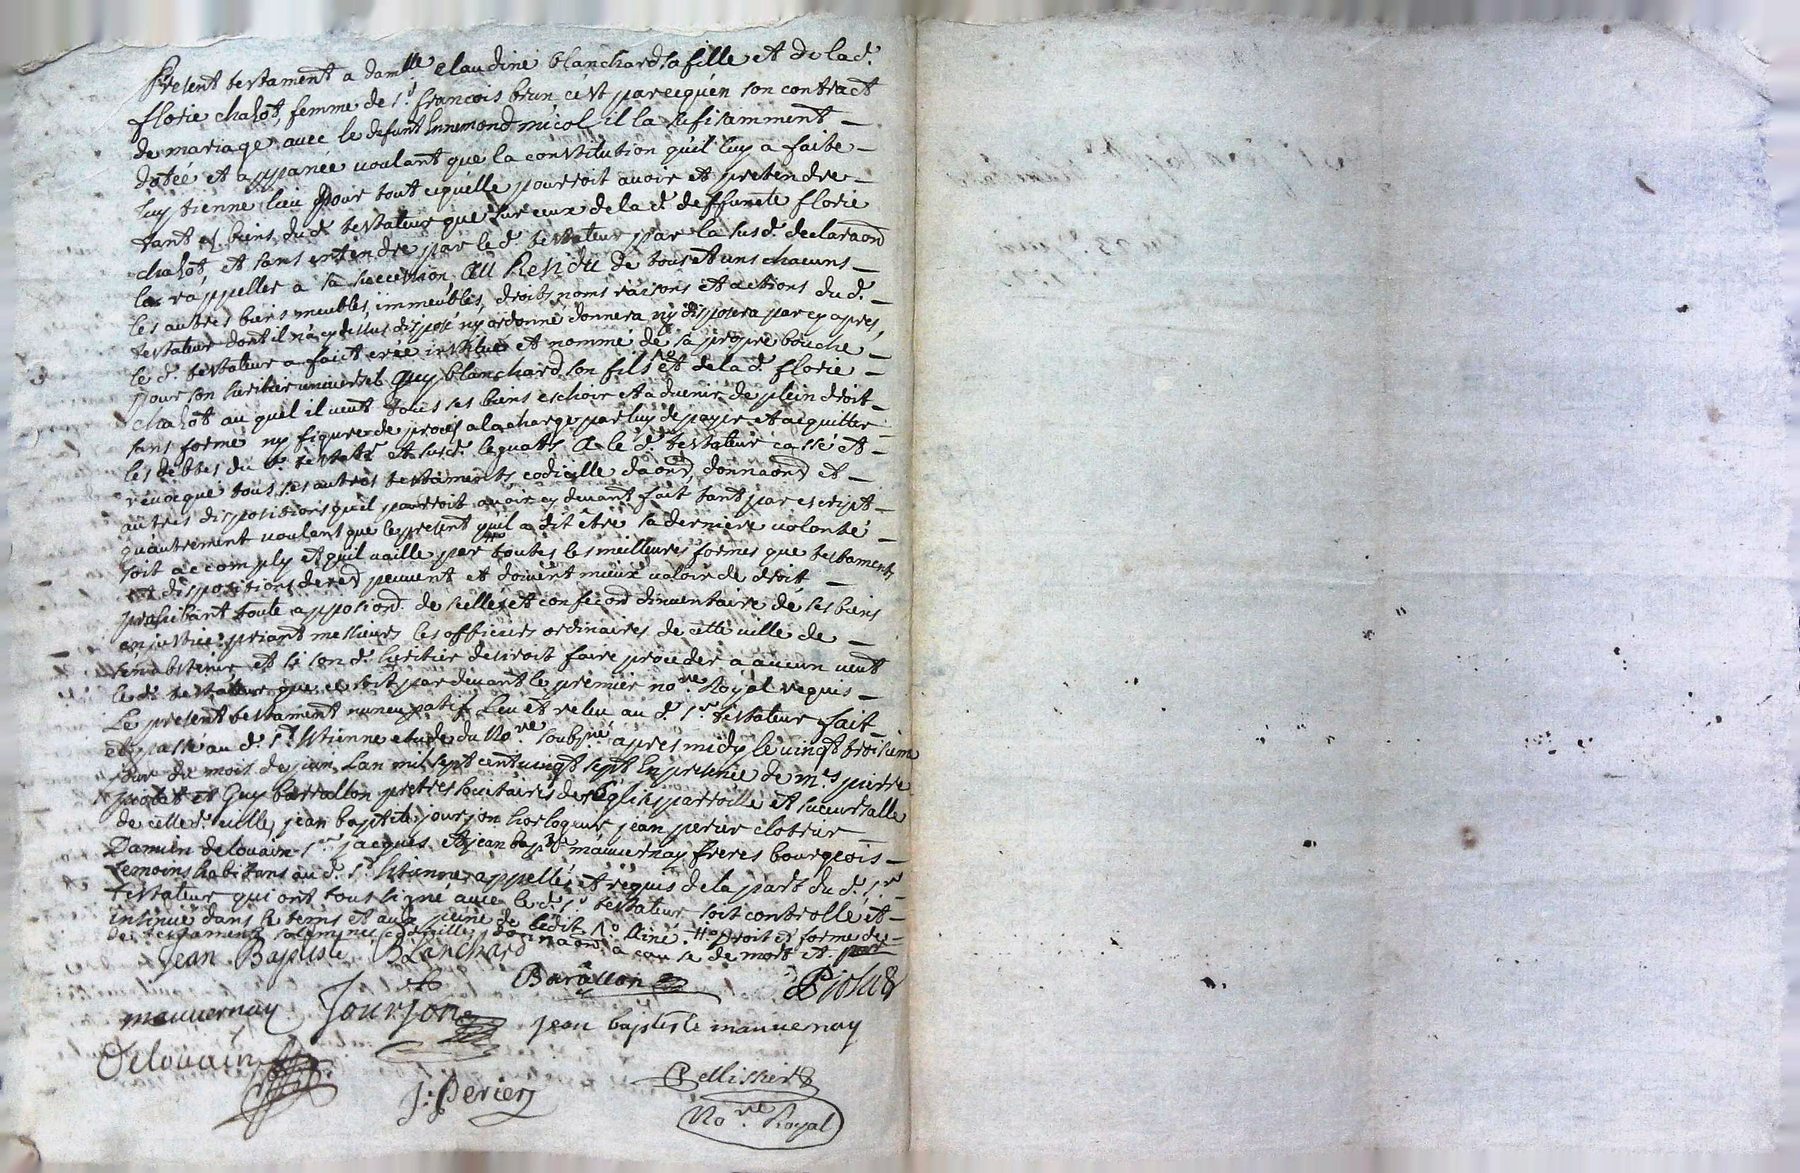 Present testament a dam.lle claudine blanchard sa fille et de la d.
florie chalot, femme de s.r francois brun c'est parcequ'en son contract
de mariage avec le defunt Ennemond micol il la sufisamment
dotée et appanee voulant que la constitution qu'il luy a faite
luy tienne lieu pour tout cequ'elle pourroit avoir et pretendre
tant es biens du d. testateur que sur ceux de la d. deffuncte florie
chalot, et sans entendre par le d. testateur par la susd. declaraon
la r'appeller a sa succession Au Residu de tous et uns chacuns
les autres biens meubles, immeubles, droits noms raisons et actions du d.
testateur dont il n'a cy dessus disposé ny ordonné donnera ny disposera par cy apres,
le d. testateur a fait créé institué et nommé de sa propre bouche
pour son heritier universel Guy blanchard son fils et de la d. florie
chalot au quel il veut tous ses biens eschoir et advenir de plein droit
sans forme ny figure de procés a la charge par luy de payer et acquitter
les debtes du d. testat.r et susd. legats. A le d. testateur cassé et
revocque tous ses autres testaments codicille daon, donnaon et
autres dispositions qu'il pourroit avoir cy devant fait tant par escript
qu'autrement voulant que le present qu'il a dit être sa derniere volonté
soit accomply et qu'il vaille par toutes les meilleures formes que testaments
et dispositions peuvent et doivent mieux valoir de droit
prohibant toute apposion de scellés et confecon d'inventaire de ses biens
en justice priant messieurs les officiers ordinaires de cette ville de
s'en abstenir et si son d. heritier desiroit faire proceder a aucun veut
le d. testateur que ce soit par devant le premier no.re Royal requis
Le present testament nuncupatif Leu et releu au d. s.r testateur fait
et passé au d. s.t Etienne etude du No.re soubsné apres midy le vingt troisieme
jour du mois de juin Lan mil sept cent vingt sept En presence de m.rs pierre
et Guy barrallon pretres societaires des Eglise parroille et succursalle
de cette d. ville, jean baptiste jourjon horlogeur jean perier clotrier
Damien delouvain s.rs jacques et jean bap.te mauvernay freres bourgeois
temoins habitans au d. s.t Etienne appellés et requis de la part du d. s.r
testateur qui ont tous signé avec le d. s.r testateur soit controllé et
insinué dans le tems et aux peine de l'edit
de testaments solemnes codicilles donnaon a cause de mort et
Jean Baptiste Blanchard
Barallon
mauvernay Jourjon jean baptiste mauvernay
Delouvain
J. Perier Pellissier
No.re Royal